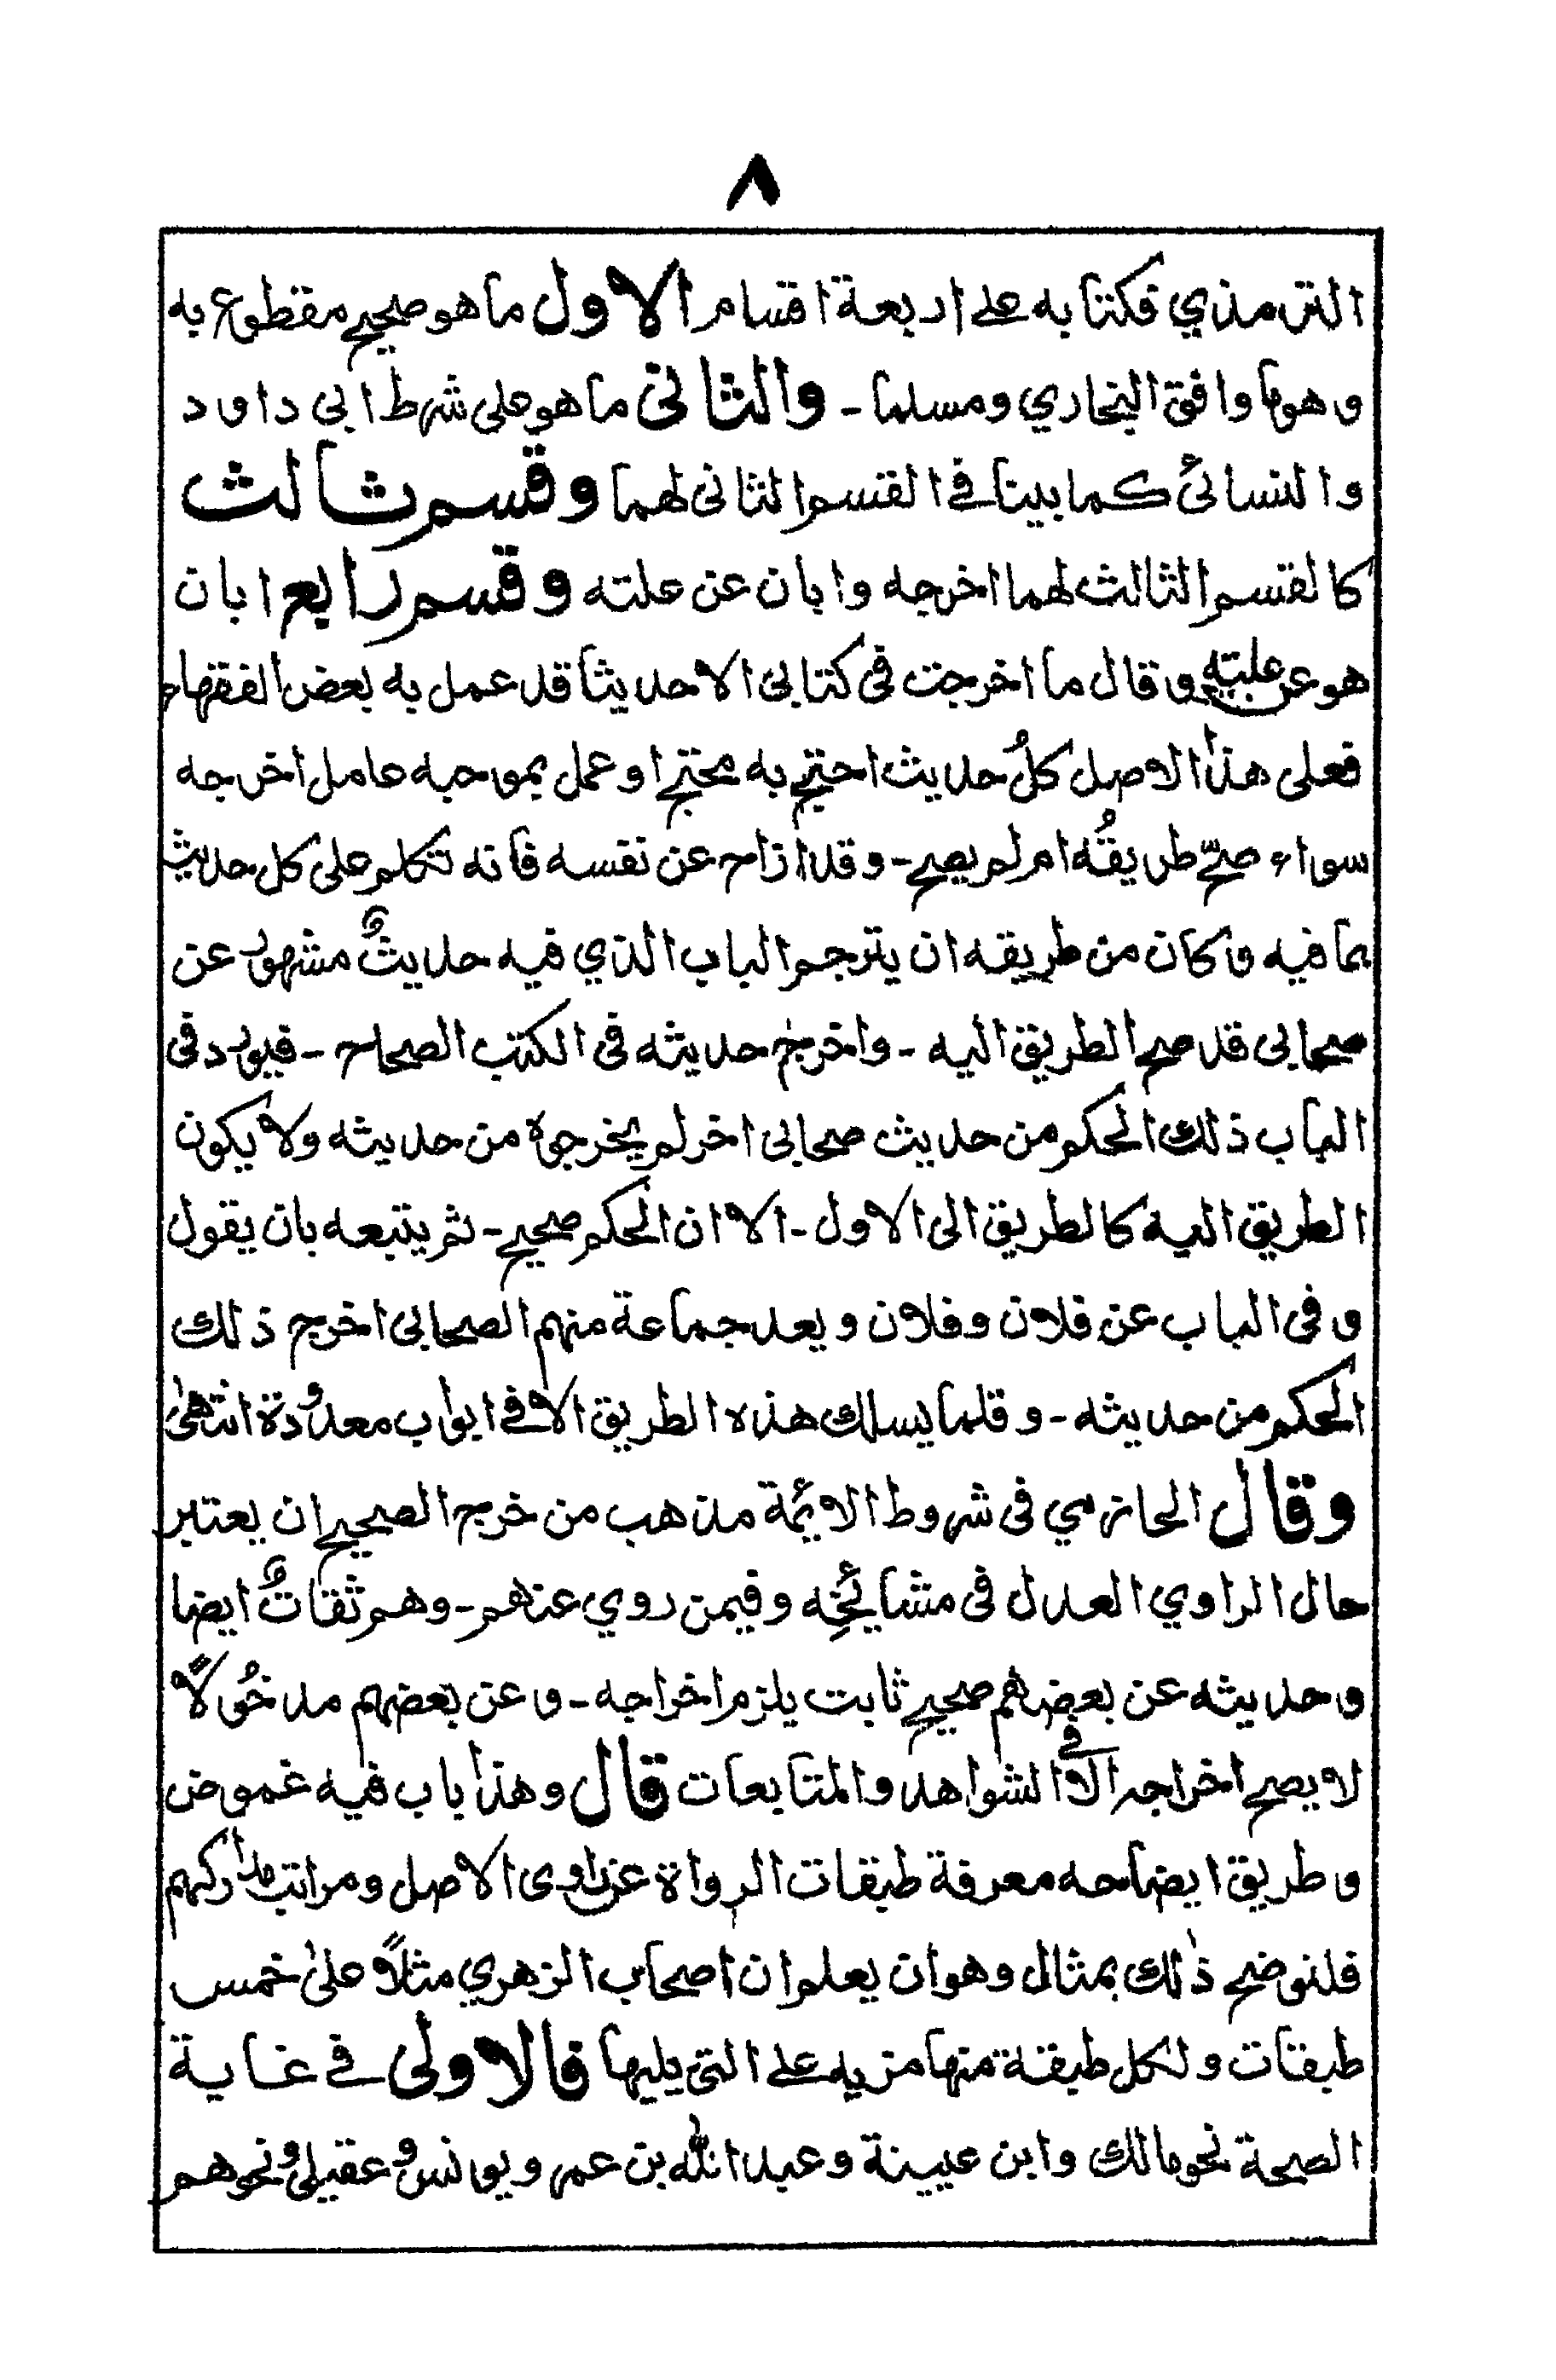 ٨
الترمذي فكتابه على اربعة اقسام الاول ما هو صحيح مقطوع به
و هو ما وافق البخاري ومسلما - والثانى ما هو على شرط ابى داود
والنسائى كما بينا فى القسم الثانى لهما وقسم ثالث
كالقسم الثالث لهما اخرجه وابان عن علته وقسم رابع ابان
هو عن علته وقال ما اخرجت فى كتابى الا حديثا قد عمل به بعض الفقهاء
فعلى هذا الاصل كلُ حديث احتج به محتج او عمل بموجبه عامل اخرجه
سواء صحّ طريقُه ام لم يصح - وقد ازاح عن نفسه فانه تكلم على كل حديث
بما فيه وكان من طريقه ان يترجم الباب الذي فيه حديثٌ مشهور عن
صحابى قد صح الطريق اليه - واخرج حديثه فى الكتب الصحاح - فيورد فى
الباب ذلك الحكم من حديث صحابى اخر لم يخرجوه من حديثه ولا يكون
الطريق اليه كالطريق الى الاول - الا ان الحكم صحيح - ثم يتبعه بان يقول
وفى الباب عن فلان وفلان ويعد جماعة منهم الصحابى اخرج ذلك
الحكم من حديثه - وقلما يسلك هذه الطريق الا فى ابواب معدودة انتهىٰ
وقال الحازمي فى شروط الائمة مذهب من خرج الصحيح ان يعتبر
حال الراوي العدل فى مشائخِه وفيمن روي عنهم - وهم ثقاتٌ ايضا
وحديثه عن بعضهم صحيح ثابت يلزم اخراجه - وعن بعضهم مدخُولًا
لا يصح اخراجه الا فى الشواهد والمتابعات قال وهذا باب فيه غموض
وطريق ايضاحه معرفة طبقات الرواة عن راوى الاصل ومراتب مداركهم
فلنوضح ذٰلك بمثال وهو ان يعلم ان اصحاب الزهري مثلاً علىٰ خمس
طبقات ولكل طبقة منها مزيه على التى يليها فالاولى فى غاية
الصحة نحو مالك وابن عيينة وعبد الله بن عمر ويونس وعقيل ونحوهم